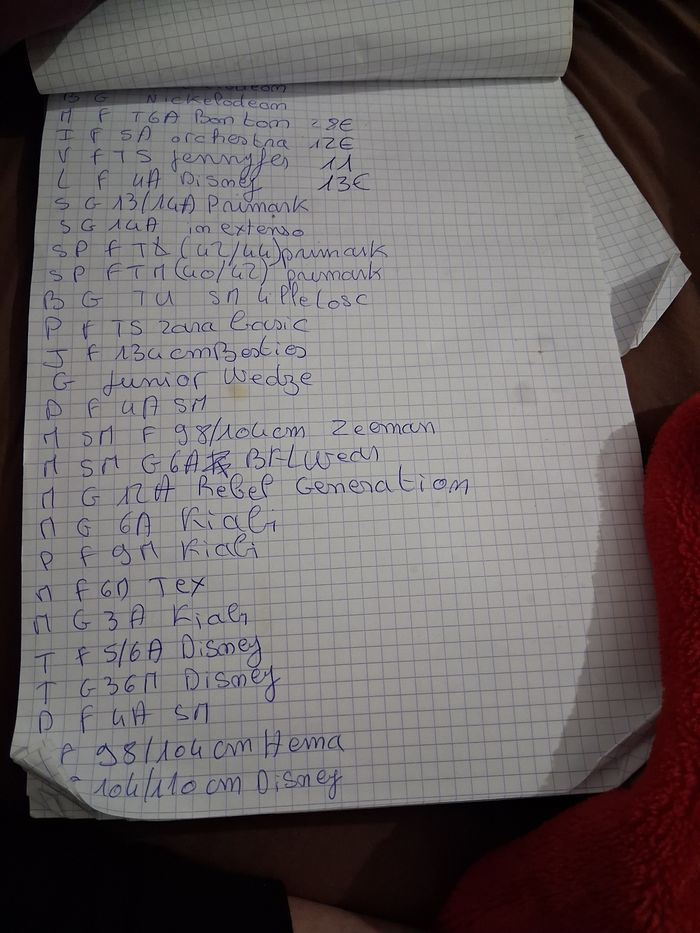 B G Nickelodeom
M F T6A Bon tom 28€
I F 5A orchestra 12€
V F TS Jennyfer 11
L F 4A Disney 13€
S G 13/14A Primark
S G 14A in extenso
SP F TL (42/44) primark
SP F TM (40/42) primark
B G TU SM
P F TS Zara basic
J F 134cm Besties
G Junior Wedze
D F 4A SM
M SM F 98/104cm Zeeman
M SM G 6A
M G 12A Rebel Generation
M G 6A Kiabi
P F 9M Kiabi
M F 6M Tex
M G 3A Kiabi
T F 5/6A Disney
T G 36M Disney
D F 4A SM
F 98/104cm Hema
104/110cm Disney